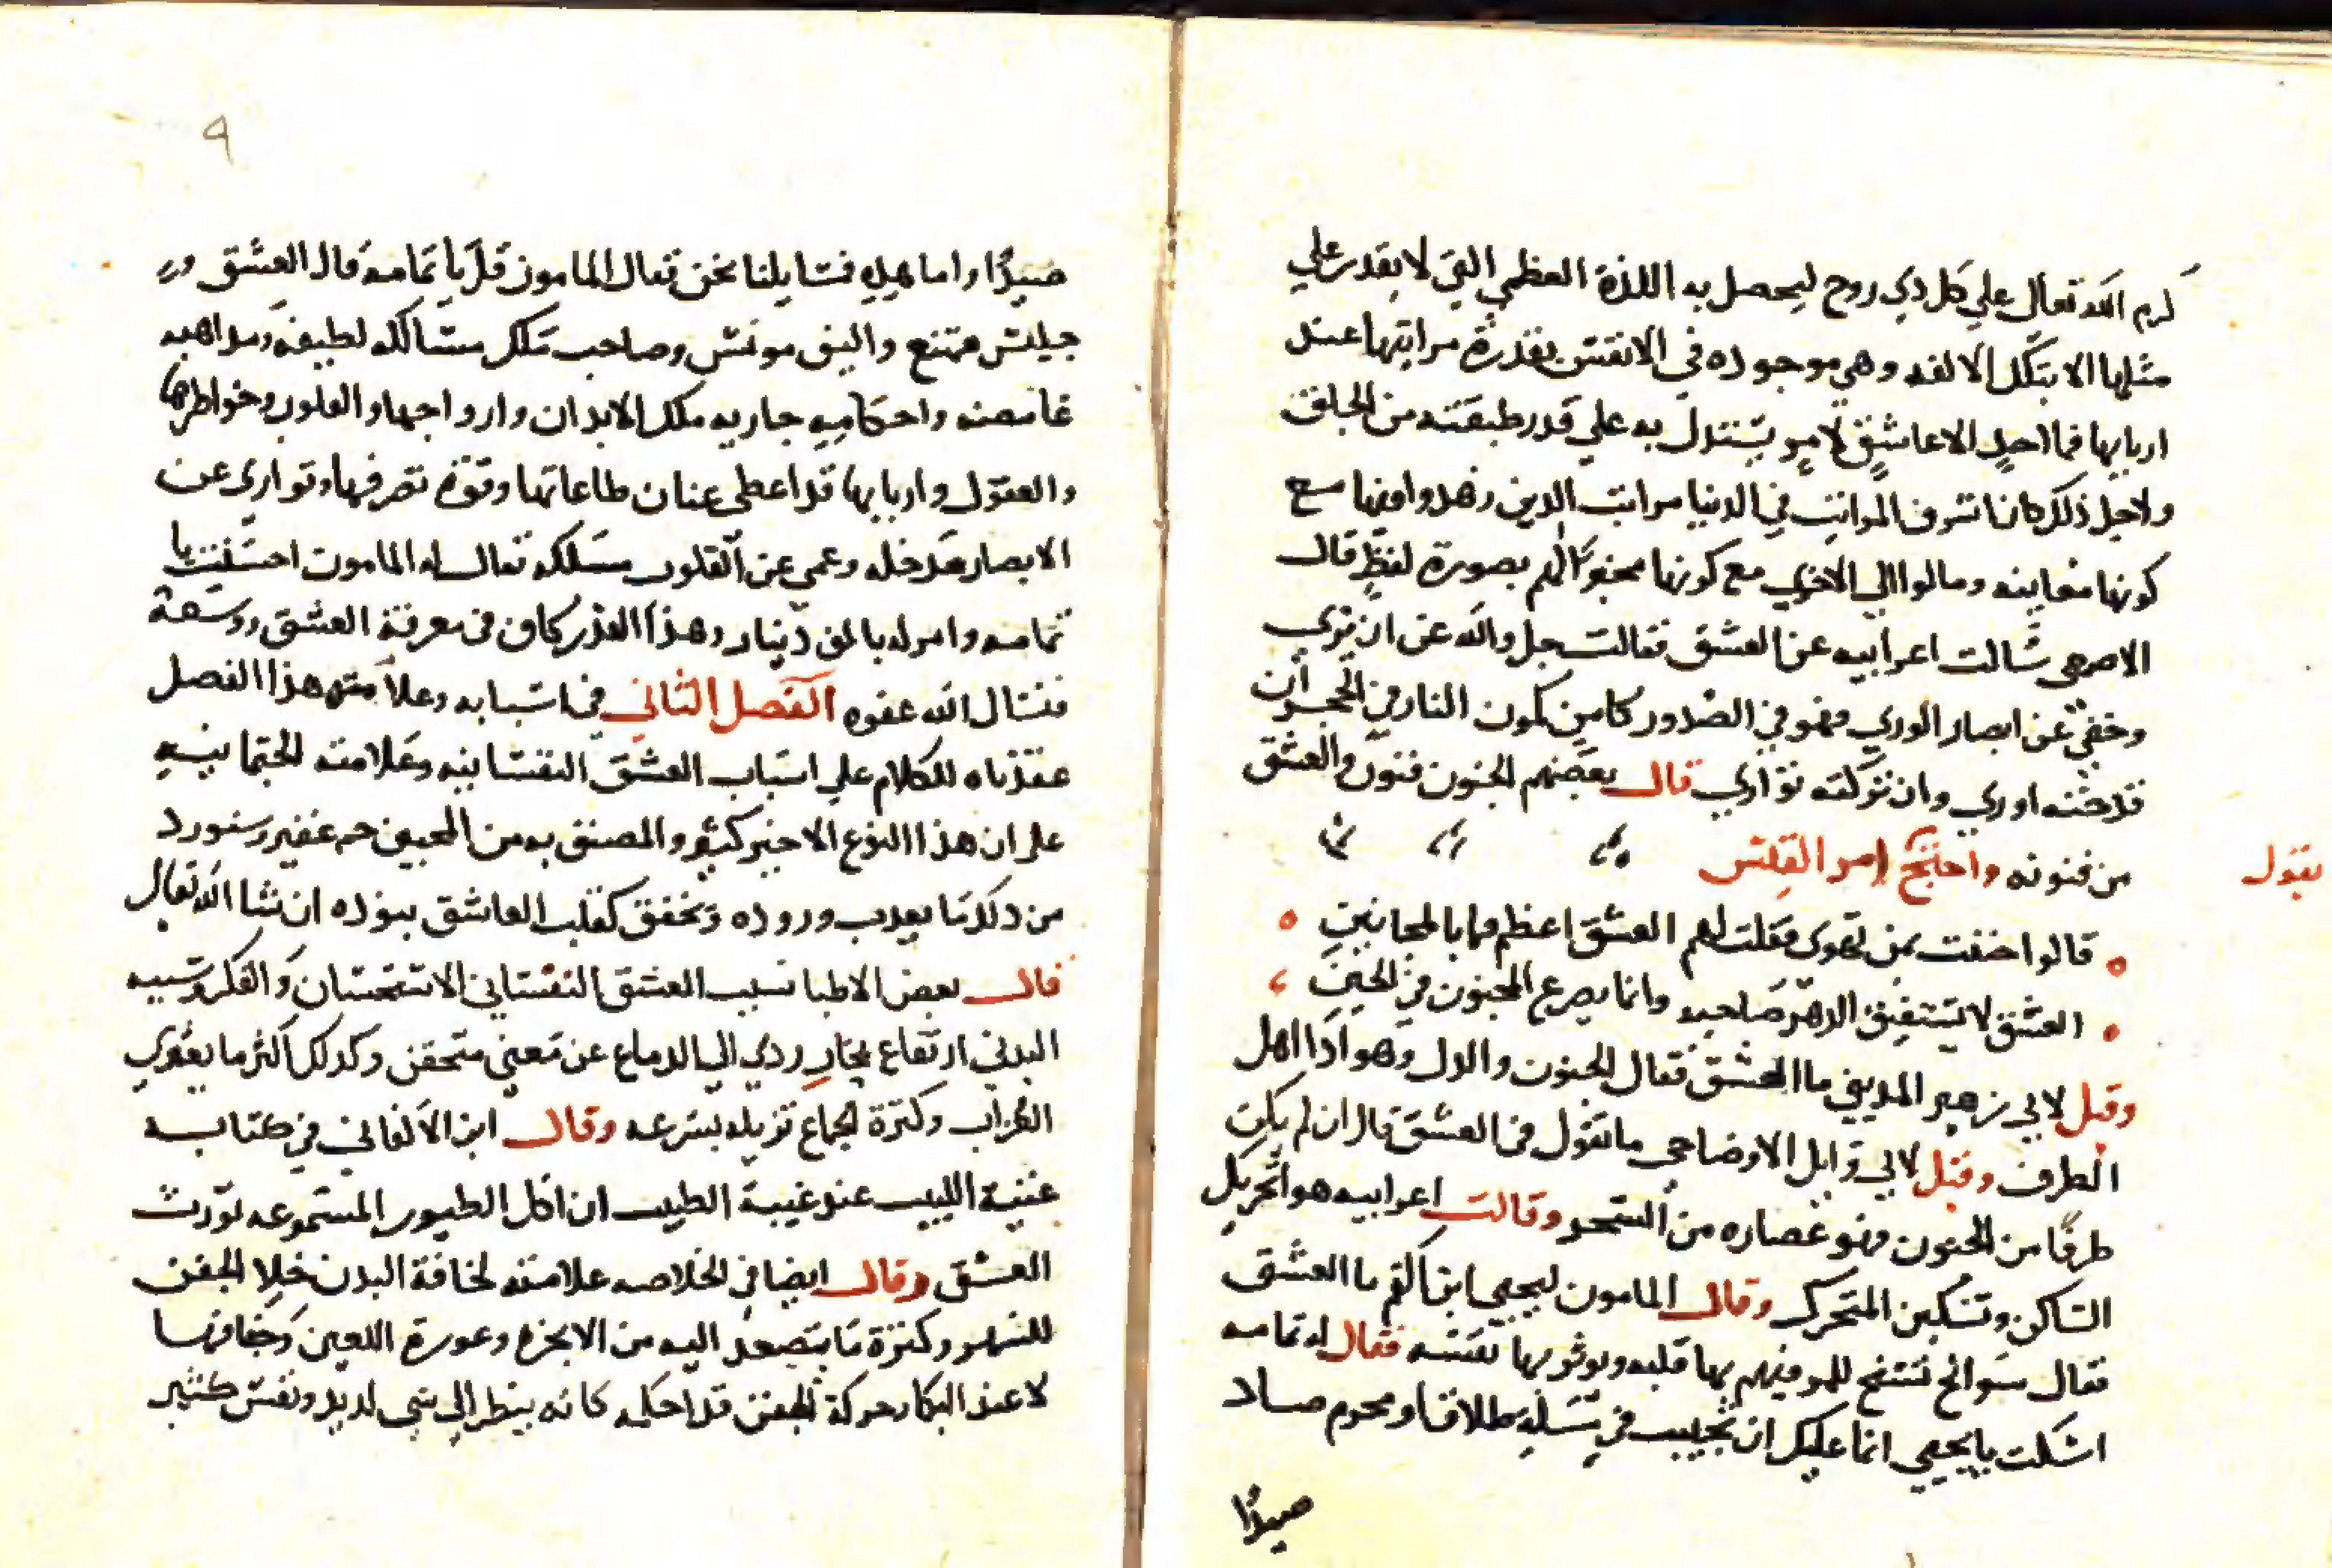 كرم الله تعالى علي كل ذي روح ليحصل به اللذة العظمي التي لا يقدر علي
مثلها الا بتلك الالفه وهي موجوده في الانفس بقدرة مراتبها عند
اربابها فما احد الا عاشق لامر يستدل به علي قدر طبقته من الخلق
ولاجل ذلك كان اشرف المراتب في الدنيا مراتب الدين زهدوا فيها مع
كونها معاينه ومالوا الي الاخري مع كونها مخبرا لهم بصورة لفظ قال
الاصمعي سالت اعرابيه عن العشق فقالت جل والله عن ان يري
وخفي عن ابصار الوري فهو في الصدور كامن ككمون النار في الحجر ان
قدحته اوري وان تركته تواري قال بعضهم الجنون فنون والعشق
من فنونه واحتج امر القيس
بقول
قالوا جننت بمن تهوى فقلت لهم العشق اعظم مما بالمجانين
العشق لا يستفيق الدهر صاحبه وانما يصرع المجنون في الحين
وقيل لابي زهير المديني ما العشق فقال الجنون والدل وهو اداء اهل
الطرف وقيل لابي وايل الاوضاحي ما تقول في العشق قال ان لم يكن
طرفا من الجنون فهو عصاره من السحر وقالت اعرابيه هو تحريك
الساكن وتسكين المتحرك وقال المامون ليحيي ابن اكثم ما العشق
فقال سوانح تسنح للمر فيهم بها قلبه ويوثر بها نفسه فقال له ثمامه
اسكت يا يحيي انما عليك ان تجيب في مسلة طلاق او محرم صاد
صيدًا
٩
صيدًا واما هذه فمسايلنا نحن فقال المامون قل يا ثمامه قال العشق
جليس ممتع واليف مونس وصاحب ملك مسالكه لطيفه ومذاهبه
غامضه واحكامه جاريه ملك الابدان وارواحها والقلوب وخواطرها
والعقول واربابها قد اعطي عنان طاعاتها وقوة تصرفها وتواري عن
الابصار مدخله وعمي عن القلوب مسلكه فقال له المامون احسنت يا
ثمامه وامر له بالف دينار وهذا القدر كاف في معرفة العشق ورسمه
فنسال الله عفوه الفصل الثاني في اسبابه وعلامته هذا الفصل
عقدناه للكلام علي اسباب العشق النفسانيه وعلامته الجثمانيه
علي ان هذا النوع الاخير كثير والمصنق به من المحبين جم غفير وسنورد
من ذلك ما يعذب وروده وتخفق كقلب العاشق بنوده ان شا الله تعالى
قال بعض الاطبا سبب العشق النفساني الاستحسان والفكر وسببه
البدني ارتفاع بخار ردي الي الدماغ عن مني محتقن وكذلك اكثر ما يعتري
العزاب وكثرة الجماع تزيله بسرعه وقال ابن الاكفاني في كتابه
غنية اللبيب عند غيبة الطبيب ان اكل الطيور المسموعه تورث
العشق وقال ايضا في الخلاصه علامته نحافة البدن خلا الجفن
للسهر وكثرة ما يتصعد اليه من الابخره وغورة العين وجفافها
لا عند البكا وحركة الجفن ضاحكه كانه ينظر الي شي لذيذ ونفس كثير